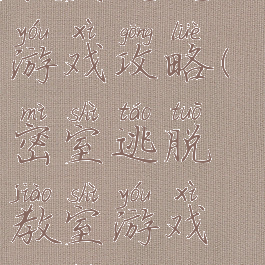 yóu xì gōng lüè
游戏攻略(
mì shì táo tuō
密室逃脱
jiào shì yóu xì
教室游戏